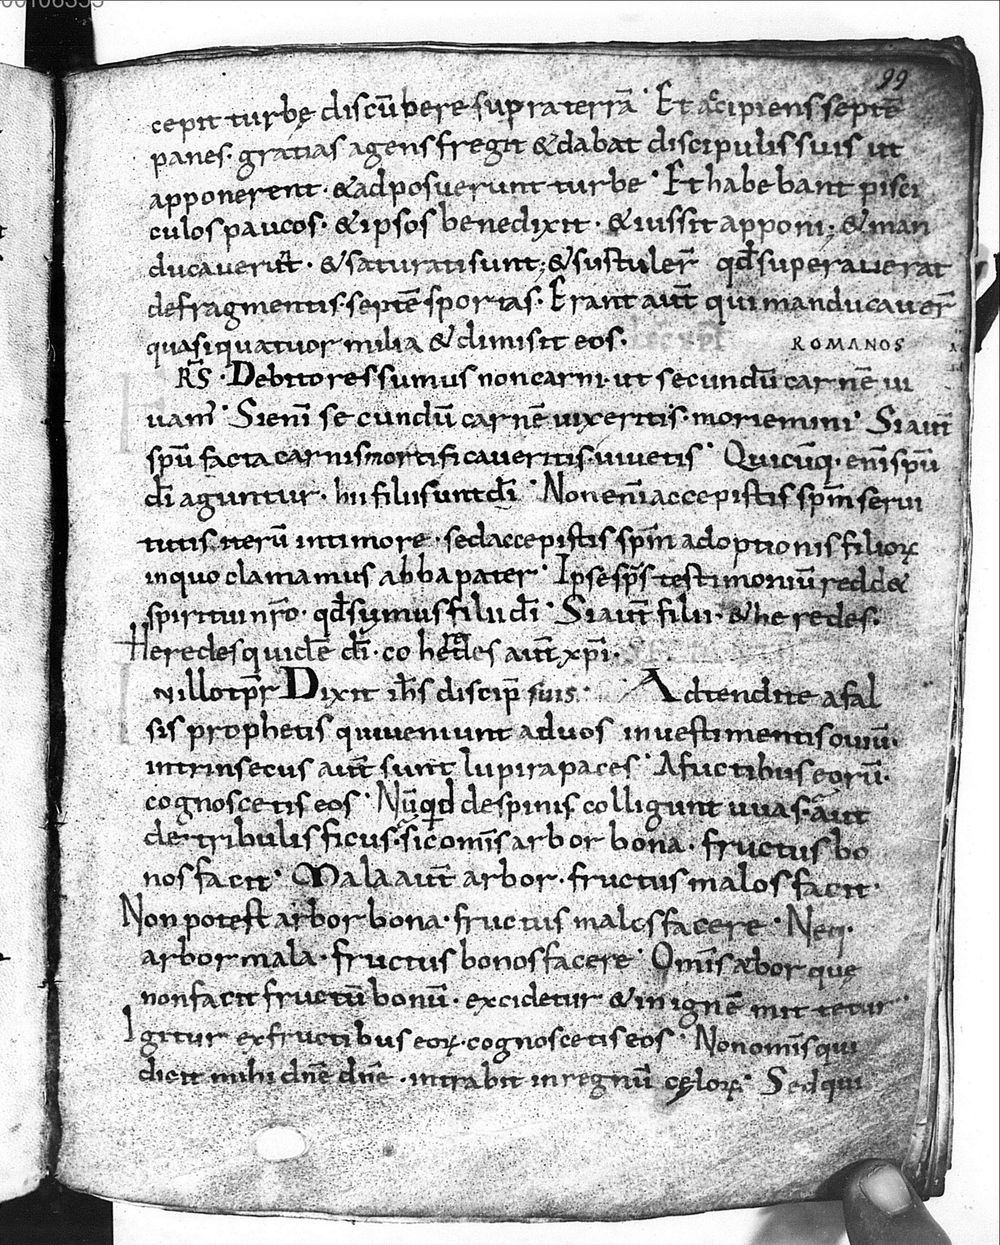 99
cepit turbę discūbere supra terrā. Et accipiens septē
panes. gratias agens fregit & dabat discipulis suis ut
apponerent. & adposuerunt turbe. Et habebant pisci
culos paucos. & ipsos benedixit. & iussit apponi; & man
ducaverūt. & saturati sunt; & sustuler̄ qđ superaverat
de fragmentis. septē sportas. Erant aūt qui manducaver̄
quasi quatuor milia & dimisit eos.
ROMANOS
R̄S. Debitores sumus non carni. ut secundū carnē ui
uam̄. Si enī secundū carnē uixeritis. moriemini. Si aūt
spū facta carnis mortificaveritis. uiuetis. Quicūq. enī spū
dī aguntur. hii filii sunt dī. Non enī accepistis spm̄ serui
tutis iterū in timore. sed accepistis spm̄ adoptionis filioꝝ
in quo clamamus abba pater. Ipse sp̄s testimoniū redd&
spiritui nr̄o. qđ sumus filii dī. Si aūt filii. & heredes.
Heredes quidē dī. coheredes aūt xp̄i.
N illo tp̄r Dixit ih̄s discip̄ suis. Adtendite a fal
sis prophetis qui veniunt ad uos in vestimentis oviū.
intrinsecus aūt sunt lupi rapaces. A fructibus eorū.
cognoscetis eos. Nūqd de spinis colligunt uuas. aut
de tribulis ficus. sic omīs arbor bona. fructus bo
nos facit. Mala aūt arbor. fructus malos facit.
Non potest arbor bona. fructus malos facere. Neq.
arbor mala. fructus bonos facere. Omīs arbor quę
non facit fructū bonū. excidetur & in ignē mittetur.
Igitur ex fructibus eoꝝ. cognoscetis eos. Non omīs qui
dicit mihi dn̄e dn̄e. intrabit in regnū cęloꝝ. Sed qui